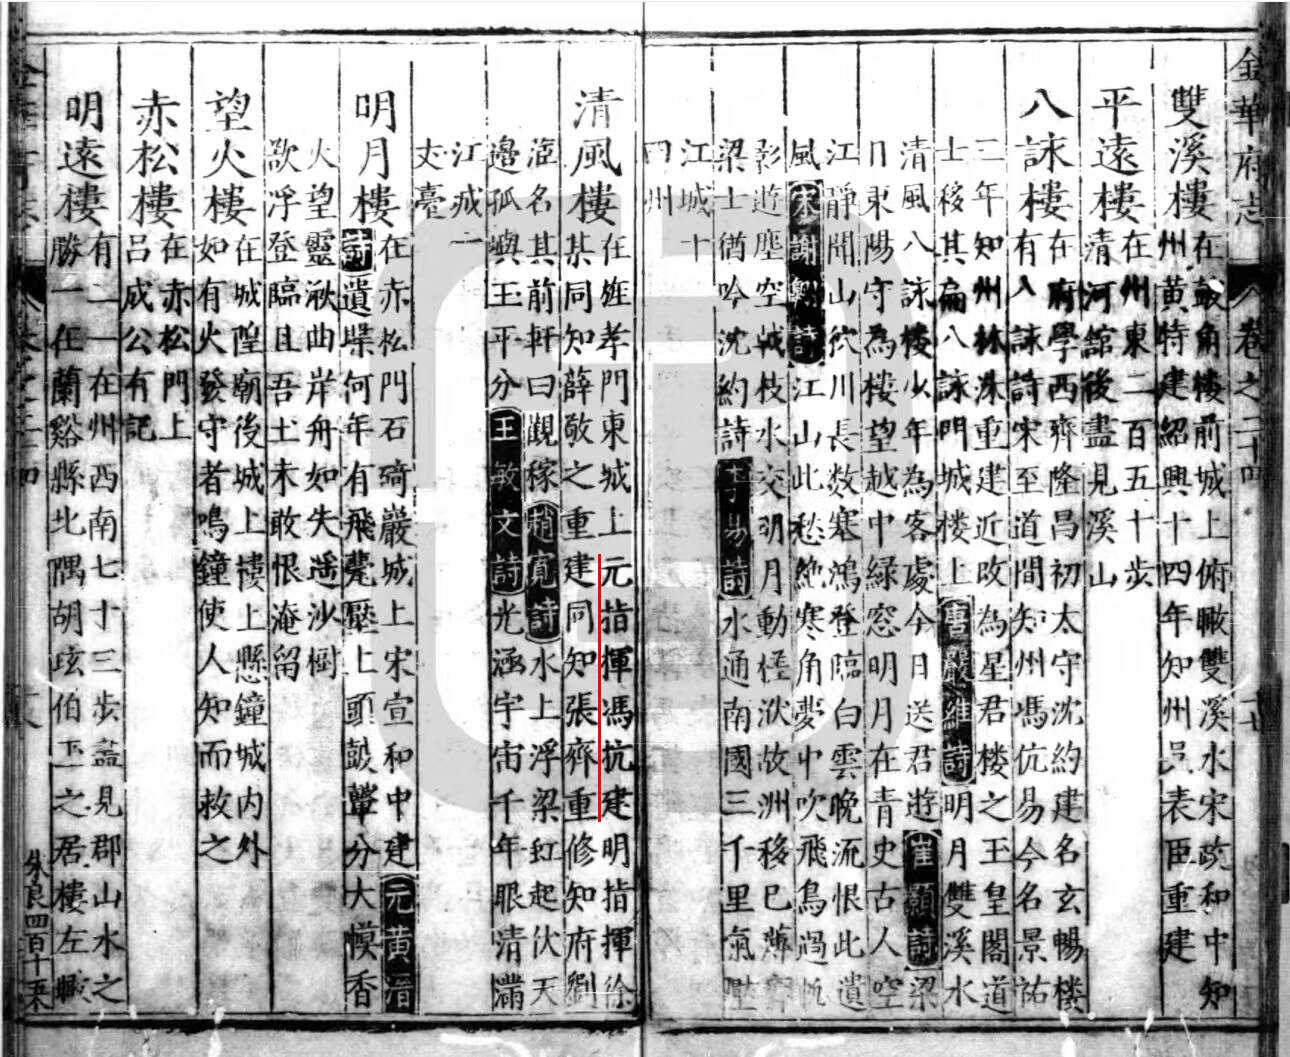 金華府志 卷之二十四 十七
雙溪樓在鼓角樓前城上俯瞰雙溪水宋政和中知
州黃特建紹興十四年知州吳表臣重建
平遠樓在州東二百五十步
清河館後盡見溪山
八詠樓在府學西齊隆昌初太守沈約建名玄暢樓
有八詠詩宋至道間知州馮伉易今名景祐
三年知州林洙重建近改為星君樓之玉皇閣道
士移其扁八詠門城樓上唐嚴維詩明月雙溪水
清風八詠樓少年為客處今日送君遊崔顥詩梁
日東陽守為樓望越中綠窓明月在青史古人空
江靜聞山狖川長数塞鴻登臨白雲晚流恨此遺
風宋謝翱詩江山此愁絶寒角夢中吹飛鳥過帆
影遊塵空戟枝水交明月動槎泆故洲移已薄齊
梁士猶吟沈約詩李易詩水通南國三千里氣壓
江城十
四州
清風樓在旌孝門東城上元指揮馮抗建明指揮徐
某同知薛敬之重建同知張齊重修知府劉
名其前軒曰觀稼趙寬詩水上浮梁虹起伏天
邊孤嶼玉平分王敏文詩光涵宇宙千年眼清滿
江城一
丈臺
明月樓在赤松門石碕巖城上宋宣和中建元黃溍
詩遺堞何年有飛甍壓上頭鼓鼙分大漠香
火望靈湫曲岸舟如失遙沙樹
欲浮登臨且吾土未敢恨淹留
望火樓在城隍廟後城上樓上懸鐘城内外
如有火發守者鳴鐘使人知而救之
赤松樓在赤松門上
呂成公有記
明遠樓有二一在州西南七十三步葢見郡山水之
勝一在蘭谿縣北隅胡伯玉之居樓左瞰
朱良四百十五